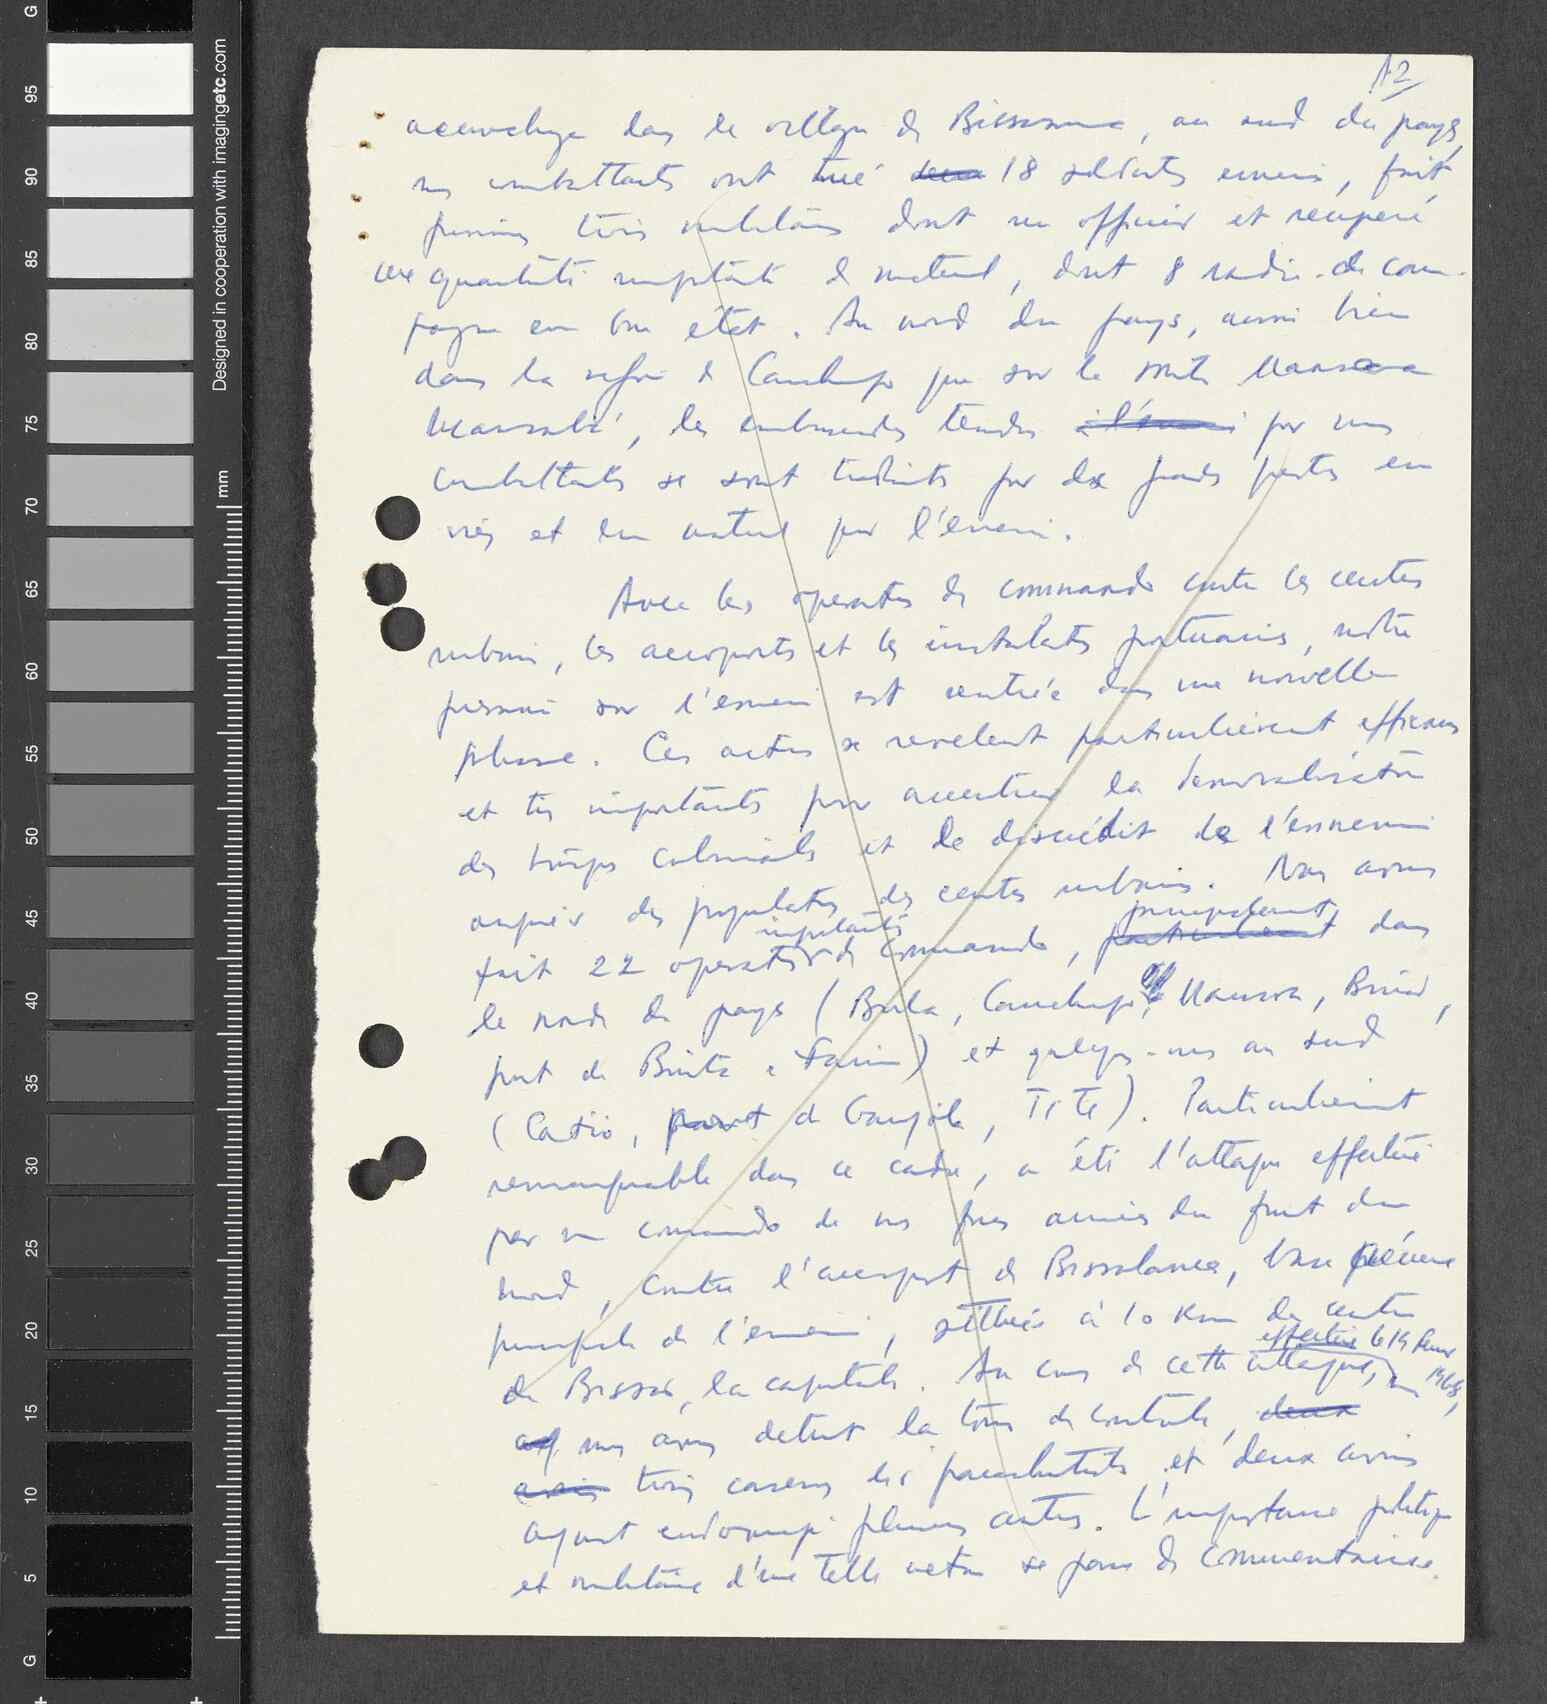 12
accrochage dans le village de Bissassema, au sud du pays,
nos combattants ont tué 18 soldats ennemis, fait
prisonniers trois militaires dont un officier et récupéré
une quantité importante de matériel, dont 8 radios de cam-
pagne en bon état. Au nord du pays, aussi bien
dans la région de Canchungo que sur la route Mansoa
Mansabá, les embuscades tendues par nos
combattants se sont traduites par de grandes pertes en
vies et en matériel pour l'ennemi.
Avec les opérations de commando contre les centres
urbains, les aéroports et les installations portuaires, notre
pression sur l'ennemi est rentrée dans une nouvelle
phase. Ces actions se revelent particulièrement efficaces
et très importantes pour accentuer la démoralisation
des troupes coloniales et le discrédit de l'ennemi
auprès des populations des centres urbains. Nous avons
fait 22 operations importantes de commando, principalement dans
le nord du pays (Bula, Canchungo, Mansoa,
port de Binta e Farim) et quelques-unes au sud
(Catió, port de Ganjola, Tite). Particulièrement
remarquable dans ce cadre, a été l'attaque effectuée
par un commando de nos forces armées du front du
nord, contre l'aeroport de Bissalanca, base aérienne
principale de l'ennemi, située à 10 Km du centre
de Bissao, la capitale. Au cours de cette attaque, effectuée le 19 février 1968,
nous avons détruit la tour de controle, deux
trois casernes des parachutistes et deux avions
ayant endommagé plusieurs autres. L'importance politique
et militaire d'une telle action se passe de commentaires.